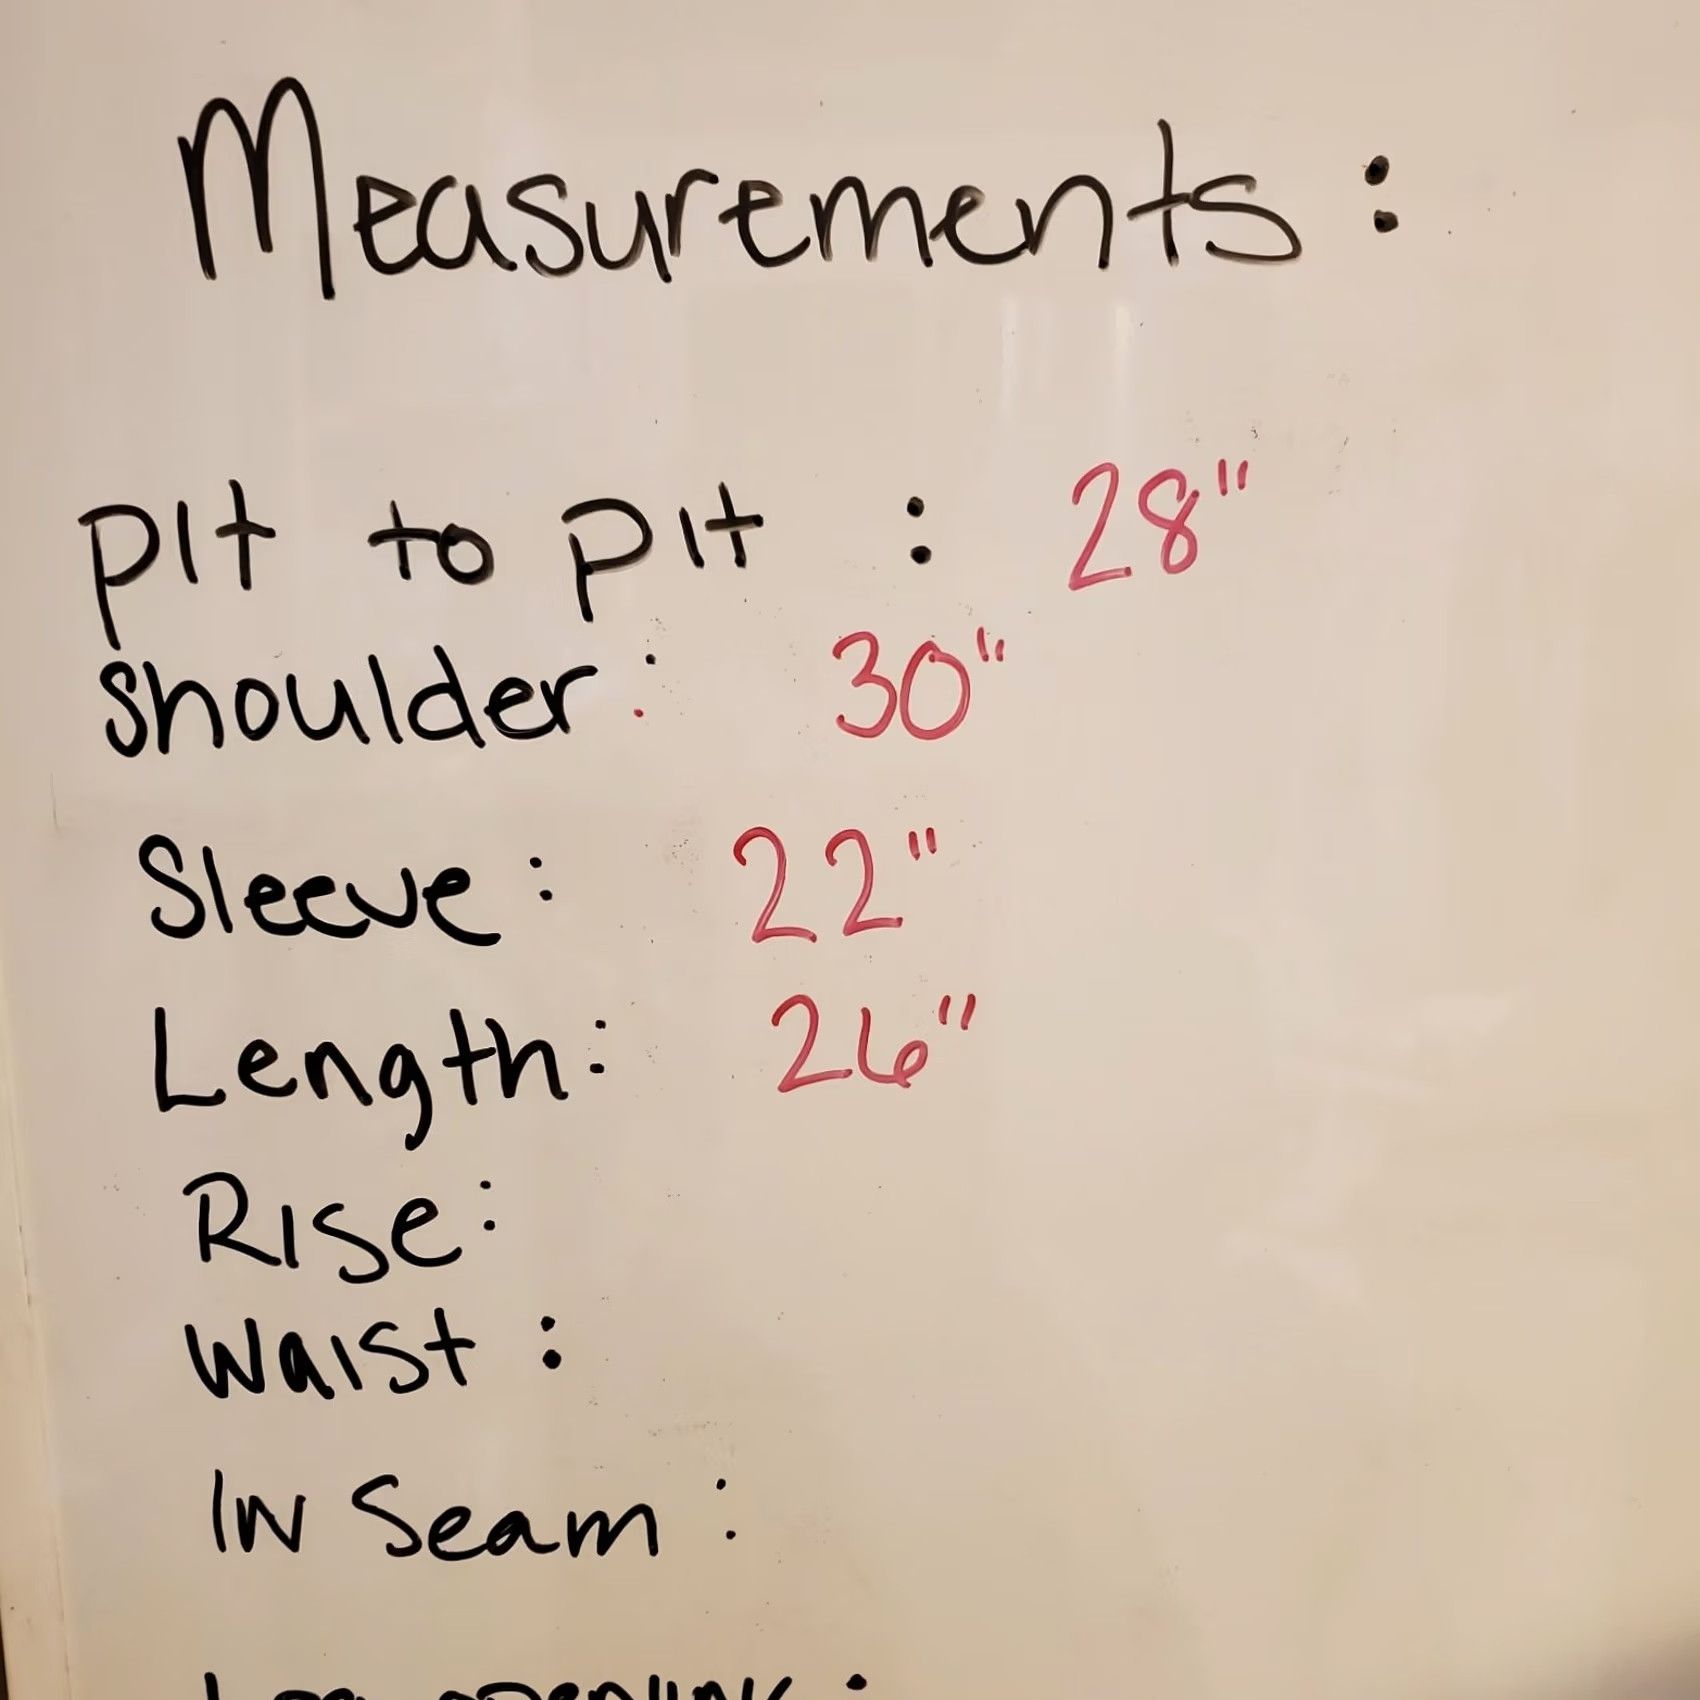 Measurements:
pit to pit : 28"
shoulder: 30"
Sleeve: 22"
Length: 26"
Rise:
Waist:
In Seam: